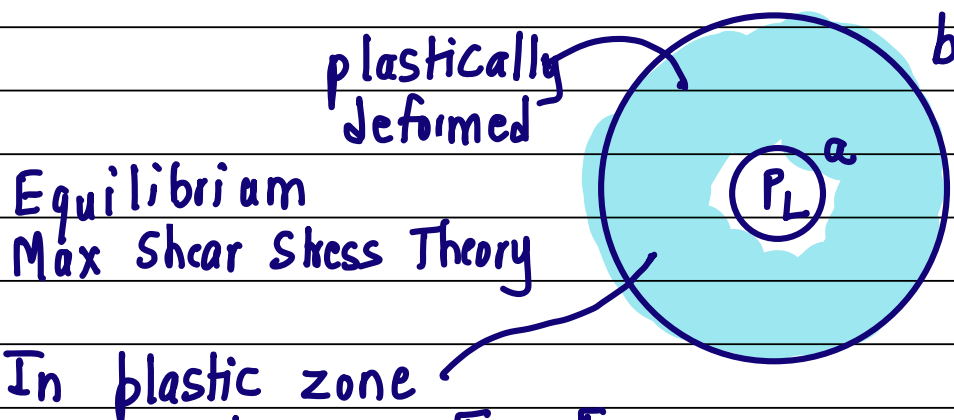 plastically
deformed
b
a
PL
Equilibrium
Max Shear Stress Theory
In plastic zone